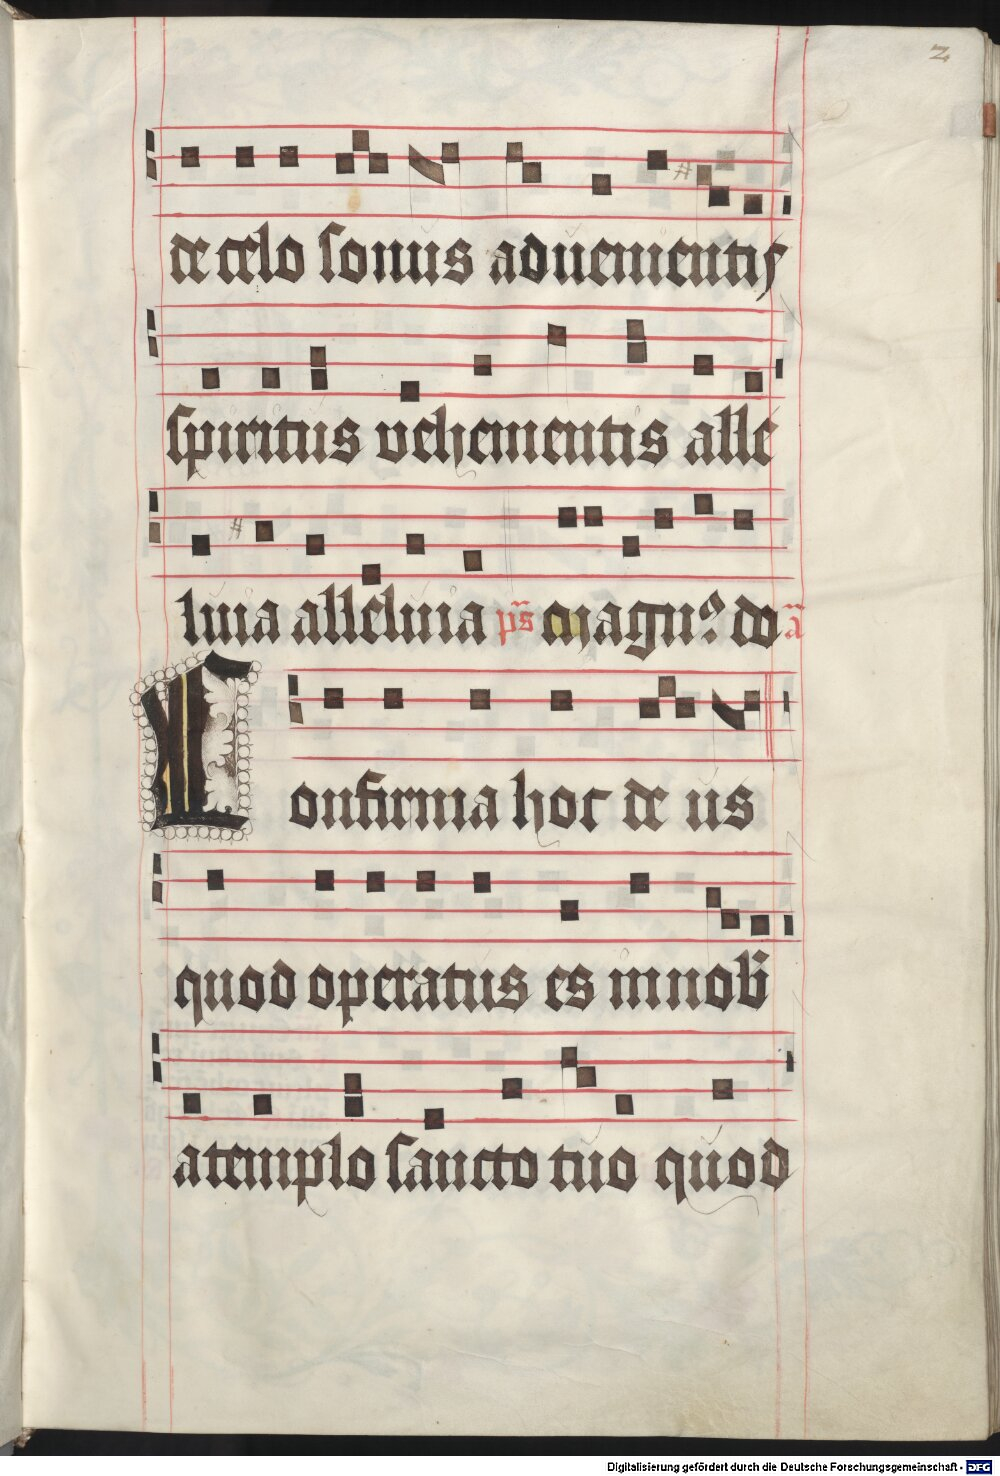 2
de celo sonus aduenientis
spiritus vehementis alle
luia alleluia ps̄ Magnꝰ do ā
Confirma hoc deus
quod operatus es in nob̄
a templo sancto tuo quod
Digitalisierung gefördert durch die Deutsche Forschungsgemeinschaft - DFG